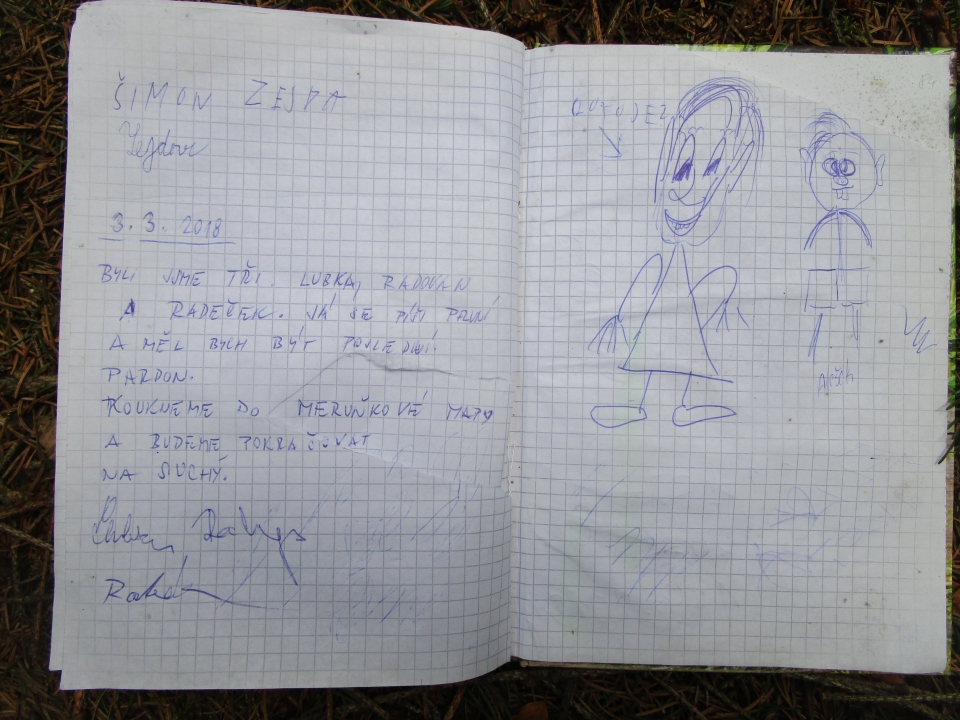 ŠIMON ZEJDA
Zejdovi
3. 3. 2018
BYLI JSME TŘI. LUBKA, RADOVAN
A RADEČEK. JÁ SE PÍŠI PRVNÍ
A MĚL BYCH BÝT POSLEDNÍ.
PARDON.
KOUKNEME DO MERUŇKOVÉ MAPY
A BUDEME POKRAČOVAT
NA SUCHÝ.